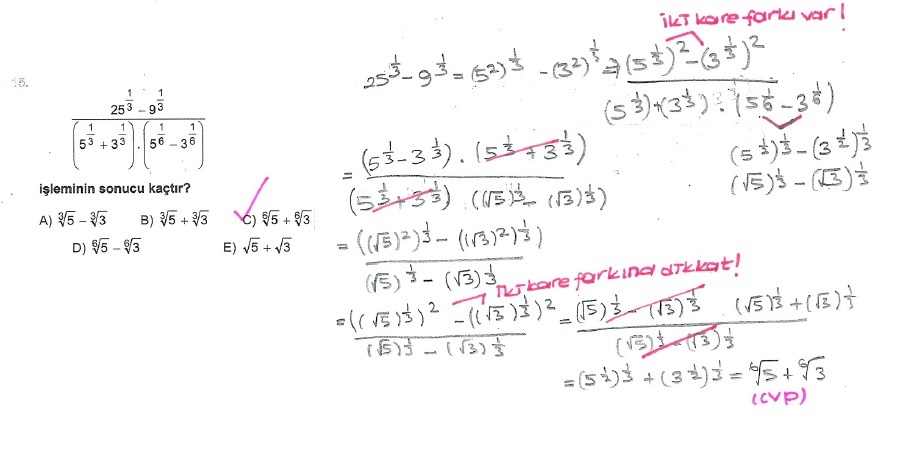 15.
25^(1/3) − 9^(1/3)
(5^(1/3) + 3^(1/3)) . (5^(1/6) − 3^(1/6))
işleminin sonucu kaçtır?
A) ∛5 − ∛3 B) ∛5 + ∛3 C) ⁶√5 + ⁶√3
D) ⁶√5 − ⁶√3 E) √5 + √3
İKİ kare farkı var!
25^(1/3) − 9^(1/3) = (5²)^(1/3) − (3²)^(1/3) ⇒ (5^(1/3))² − (3^(1/3))²
(5^(1/3)) + (3^(1/3)) . (5^(1/6) − 3^(1/6))
(5^(1/2))^(1/3) − (3^(1/2))^(1/3)
(√5)^(1/3) − (√3)^(1/3)
= (5^(1/3) − 3^(1/3)) . (5^(1/3) + 3^(1/3))
(5^(1/3) + 3^(1/3)) ((√5)^(1/3) − (√3)^(1/3))
= ((√5)²)^(1/3) − ((√3)²)^(1/3)
(√5)^(1/3) − (√3)^(1/3)
İKİ kare farkına dikkat!
= ((√5)^(1/3))² − ((√3)^(1/3))² = (√5)^(1/3) − (√3)^(1/3) (√5)^(1/3) + (√3)^(1/3)
(√5)^(1/3) − (√3)^(1/3) (√5)^(1/3) − (√3)^(1/3)
= (5^(1/2))^(1/3) + (3^(1/2))^(1/3) = ⁶√5 + ⁶√3
(CVP)